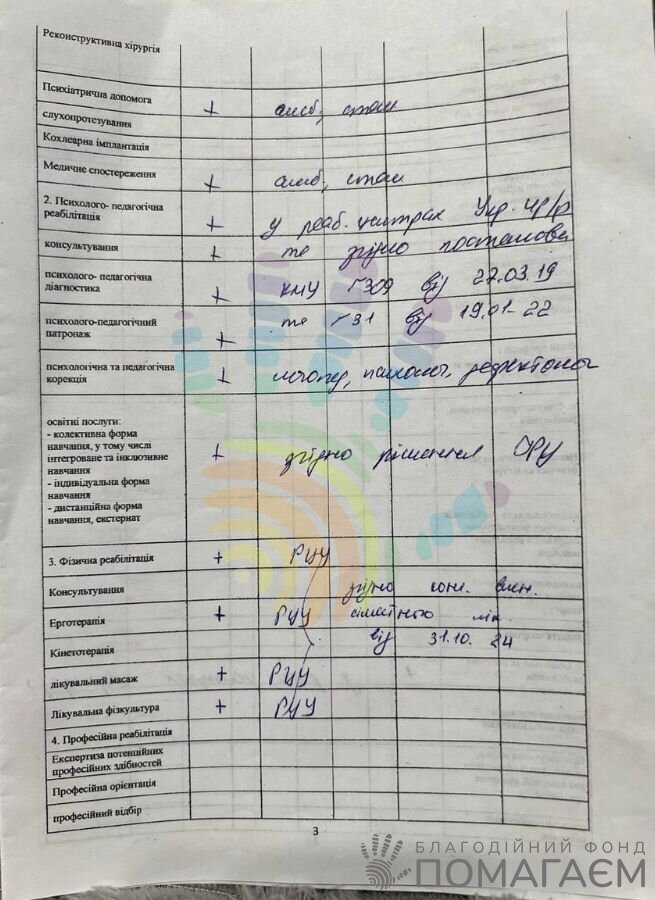 Реконструктивна хірургія
Психіатрична допомога + амб, стац
слухопротезування
Кохлеарна імплантація
Медичне спостереження + амб, стац
2. Психолого- педагогічна реабілітація + у реаб. центрах Укр.
консультування + та згідно постанови
психолого- педагогічна діагностика + КМУ №309 від 27.03.19
психолого-педагогічний патронаж + та №31 від 19.01-22
психологічна та педагогічна корекція + логопед, психолог, дефектолог
освітні послуги:
- колективна форма
навчання, у тому числі
інтегроване та інклюзивне
навчання + згідно рішення ІРЦ
- індивідуальна форма
навчання
- дистанційна форма
навчання, екстернат
3. Фізична реабілітація +
Консультування згідно
Ерготерапія +
Кінетотерапія від 31.10. 24
лікувальний масаж +
Лікувальна фізкультура +
4. Професійна реабілітація
Експертиза потенційних
професійних здібностей
Професійна орієнтація
професійний відбір
3
БЛАГОДІЙНИЙ ФОНД
ПОМАГАЄМ